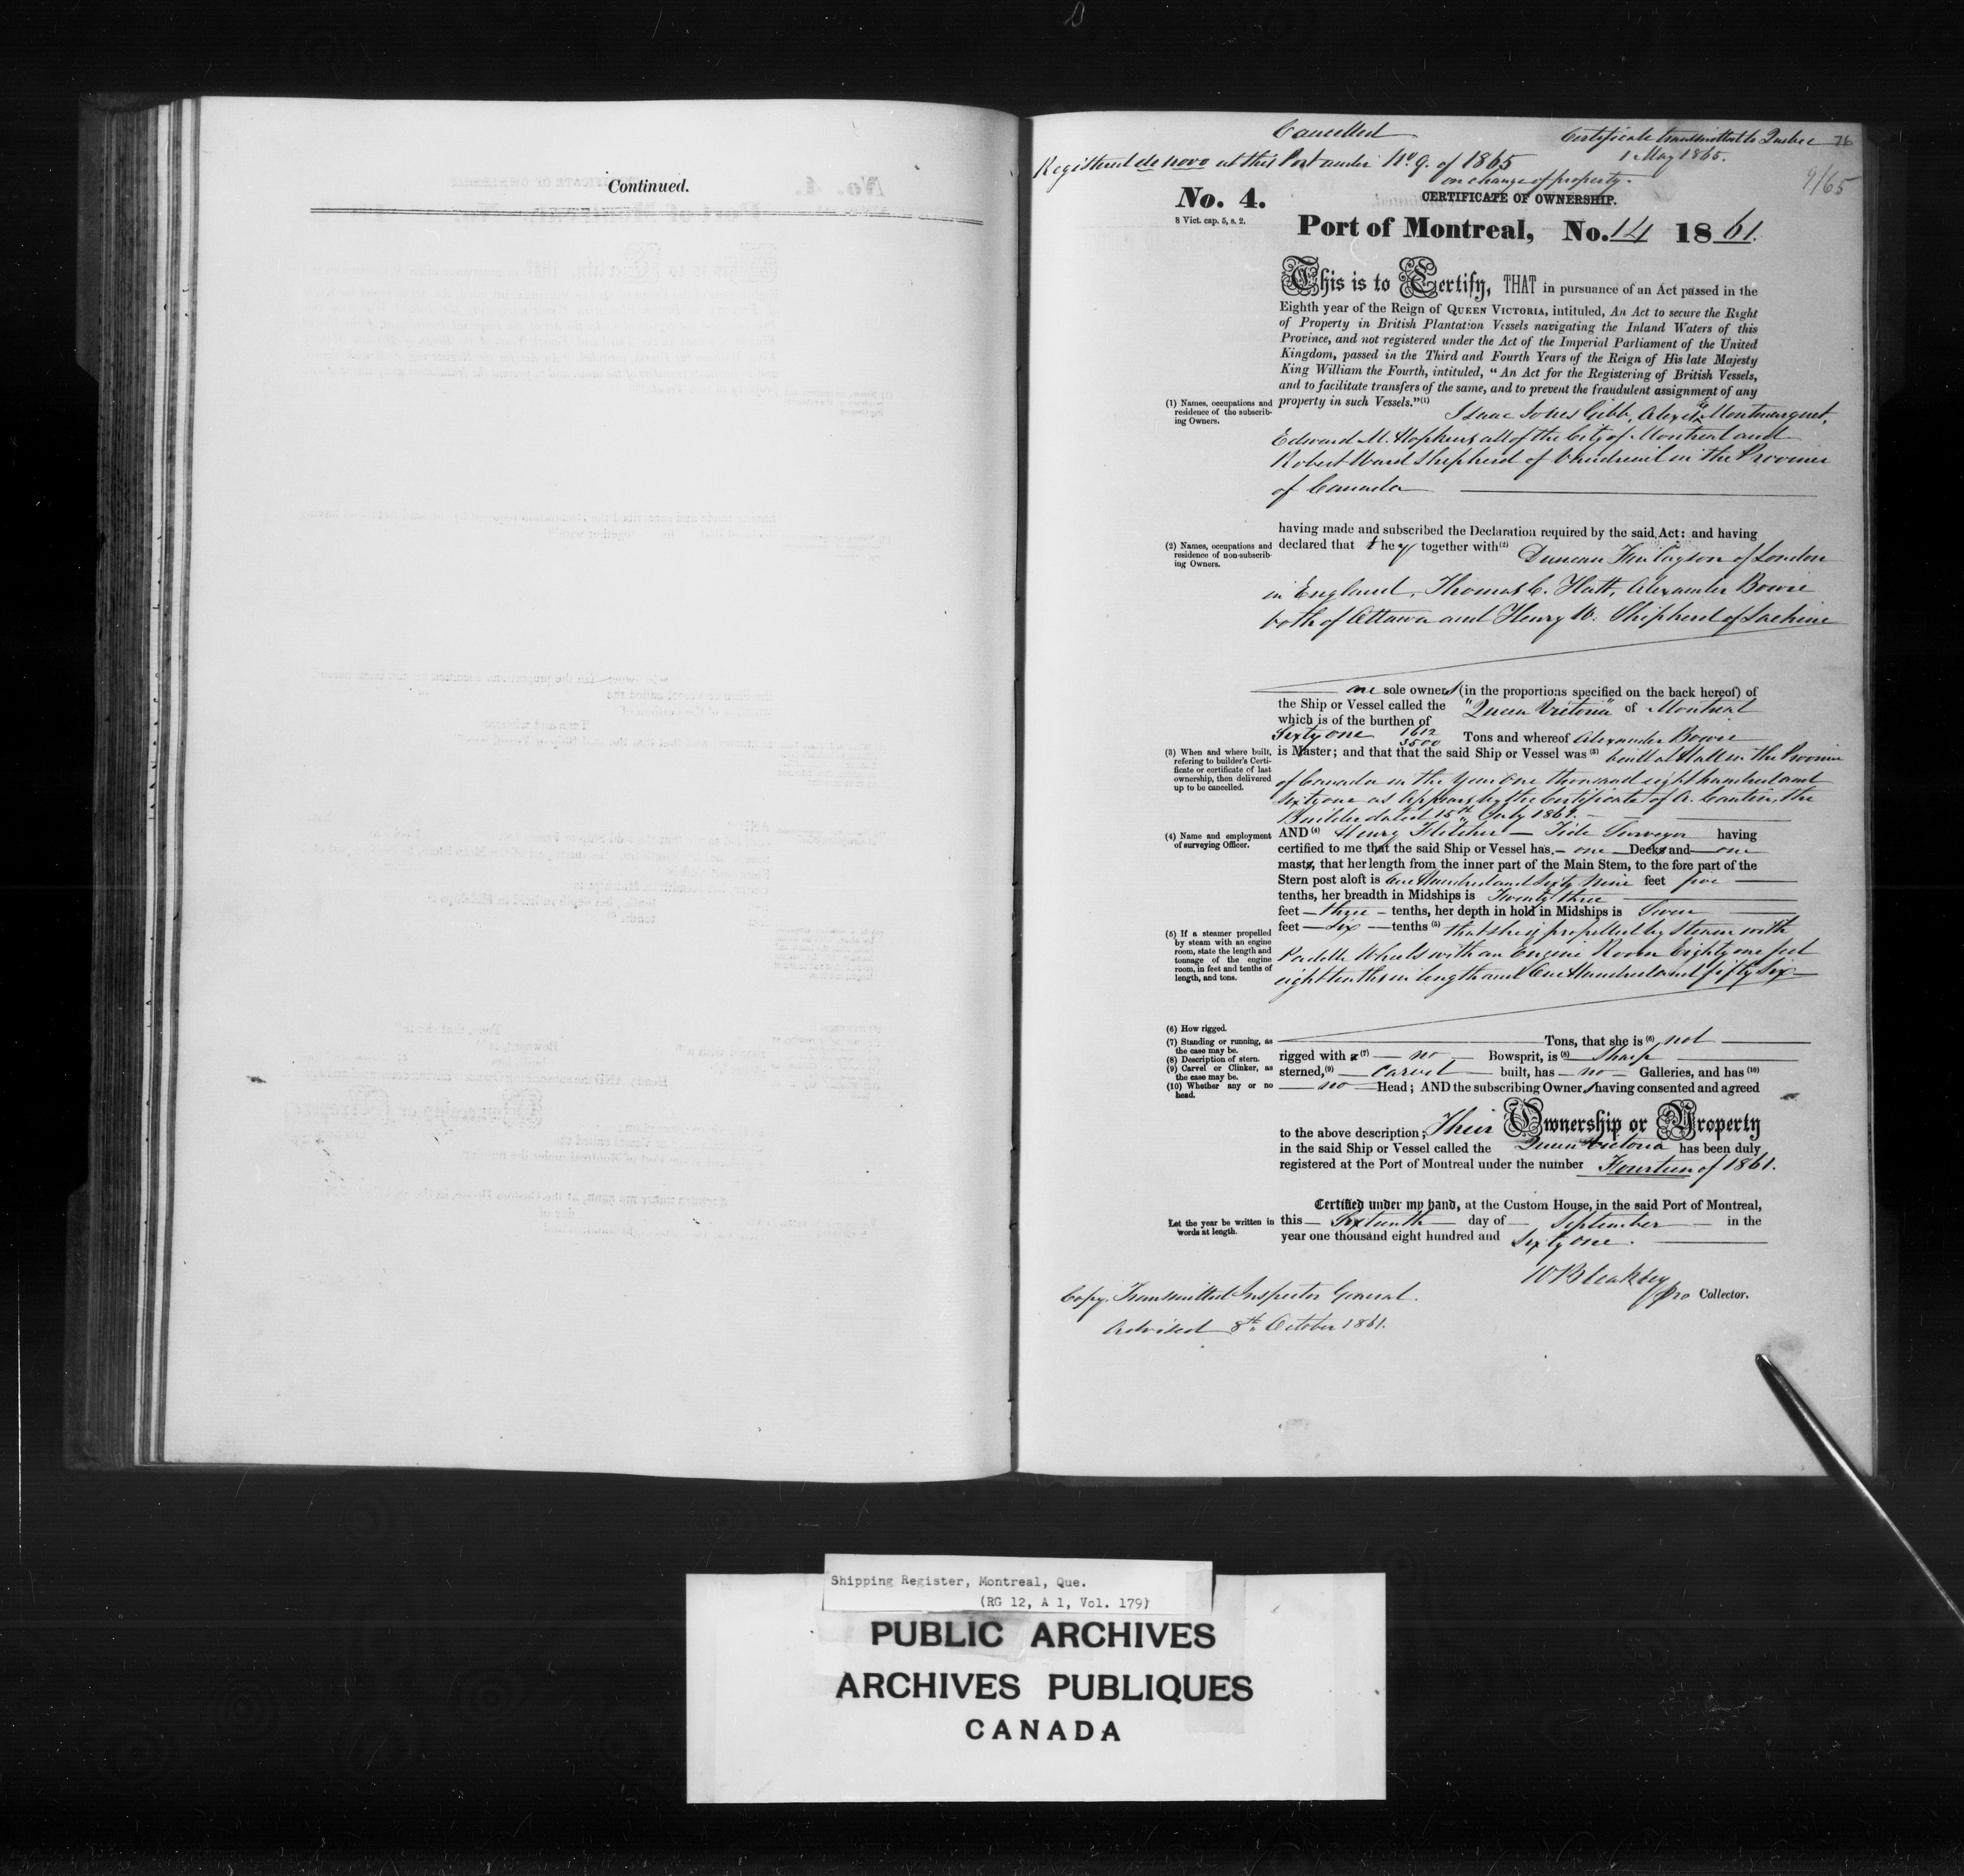 Continued.
Cancelled
Certificate transmitted to Quebec 76
Registered de novo at this Port under No. 9. of 1865
1 May 1865.
on change of property.
9/65
No. 4.
8 Vict. cap. 5, s. 2.
CERTIFICATE OF OWNERSHIP.
Port of Montreal, No. 14 1861.
This is to Certify, THAT in pursuance of an Act passed in the
Eighth year of the Reign of QUEEN VICTORIA, intituled, An Act to secure the Right
of Property in British Plantation Vessels navigating the Inland Waters of this
Province, and not registered under the Act of the Imperial Parliament of the United
Kingdom, passed in the Third and Fourth Years of the Reign of His late Majesty
King William the Fourth, intituled, "An Act for the Registering of British Vessels,
and to facilitate transfers of the same, and to prevent the fraudulent assignment of any
property in such Vessels."(1) Isaac Jones Gibb, Montmarquet,
(1) Names, occupations and
residence of the subscrib-
ing Owners.
Edward M. Hopkins all of the City of Montreal and
Robert Ward Shepherd of Vaudreuil in the Province
of Canada
having made and subscribed the Declaration required by the said Act: and having
declared that they together with(2) Duncan Finlayson of London
(2) Names, occupations and
residence of non-subscrib-
ing Owners.
in England, Thomas C. Alexander Bowie
both of Ottawa and Henry W. Shepherd of Lachine
are sole owners (in the proportions specified on the back hereof) of
the Ship or Vessel called the "Queen Victoria" of Montreal
which is of the burthen of
Sixty one 1612/3500 Tons and whereof Alexander Bowie
is Master; and that that the said Ship or Vessel was (3) built at in the Province
(3) When and where built,
refering to builder's Certi-
ficate or certificate of last
ownership, then delivered
up to be cancelled.
of Canada in the year One thousand eight hundred and
Sixty one as appears by the Certificate of A. Cantin, the
Builder dated 15th July 1861.
AND (4) Henry Fletcher Tide Surveyor having
(4) Name and employment
of surveying Officer.
certified to me that the said Ship or Vessel has one Deck and one
mast, that her length from the inner part of the Main Stem, to the fore part of the
Stern post aloft is One Hundred and Sixty Nine feet five
tenths, her breadth in Midships is Twenty three
feet three tenths, her depth in hold in Midships is Seven
feet six tenths (5) that she is propelled by Steam with
(5) If a steamer propelled
by steam with an engine
room, state the length and
tonnage of the engine
room, in feet and tenths of
length, and tons.
Paddle Wheels with an Engine Room Eighty one feet
eight tenths in length and One Hundred and fifty Six
(6) How rigged.
(7) Standing or running, as
the case may be.
(8) Description of stern.
(9) Carvel or Clinker, as
the case may be.
(10) Whether any or no
head.
Tons, that she is (6) not
rigged with a (7) no Bowsprit, is (8) Sharp
sterned, (9) Carvel built, has no Galleries, and has (10)
no Head; AND the subscribing Owners having consented and agreed
to the above description; Their Ownership or Property
in the said Ship or Vessel called the Queen Victoria has been duly
registered at the Port of Montreal under the number Fourteen of 1861.
Certified under my hand, at the Custom House, in the said Port of Montreal,
Let the year be written in
words at length.
this Sixteenth day of September in the
year one thousand eight hundred and Sixty one.
W Bleakley
pro Collector.
Copy Transmitted Inspector General.
Advised 8th October 1861.
Shipping Register, Montreal, Que.
(RG 12, A 1, Vol. 179)
PUBLIC ARCHIVES
ARCHIVES PUBLIQUES
CANADA